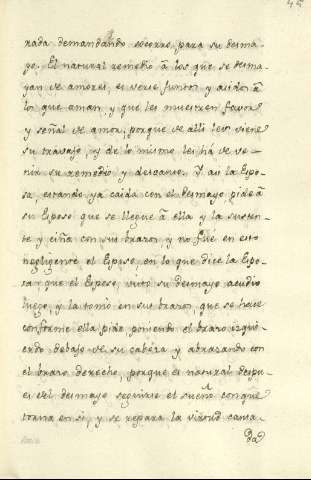 45
rada demandando socorro, para su desma-
yo. El natural remedio â los que se desma-
yan de amores, es verse juntos y asidos â
lo que aman y que les muestren favor
y señal de amor, porque de alli les viene
su trabajo, y de lo mismo les há de ve-
nir su remedio y descanso. Y asi la Espo-
sa, estando yá caida con el desmayo pide â
su Esposo que se llegue â ella y la susten-
te y ciña con sus brazos y no fué en esto
negligente el Esposo, en lo que dice la Espo-
sa y que el Esposo, visto su desmayo acudio
luego, y la tomó en sus brazos, que se hace
conforme ella pide, poniendo el brazo izqui-
erdo debajo de su cabeza y abrazando con
el brazo derecho, porque es natural despu-
es del desmayo seguirse el sueño conque
torna en si, y se repara la virtud cansa-
da